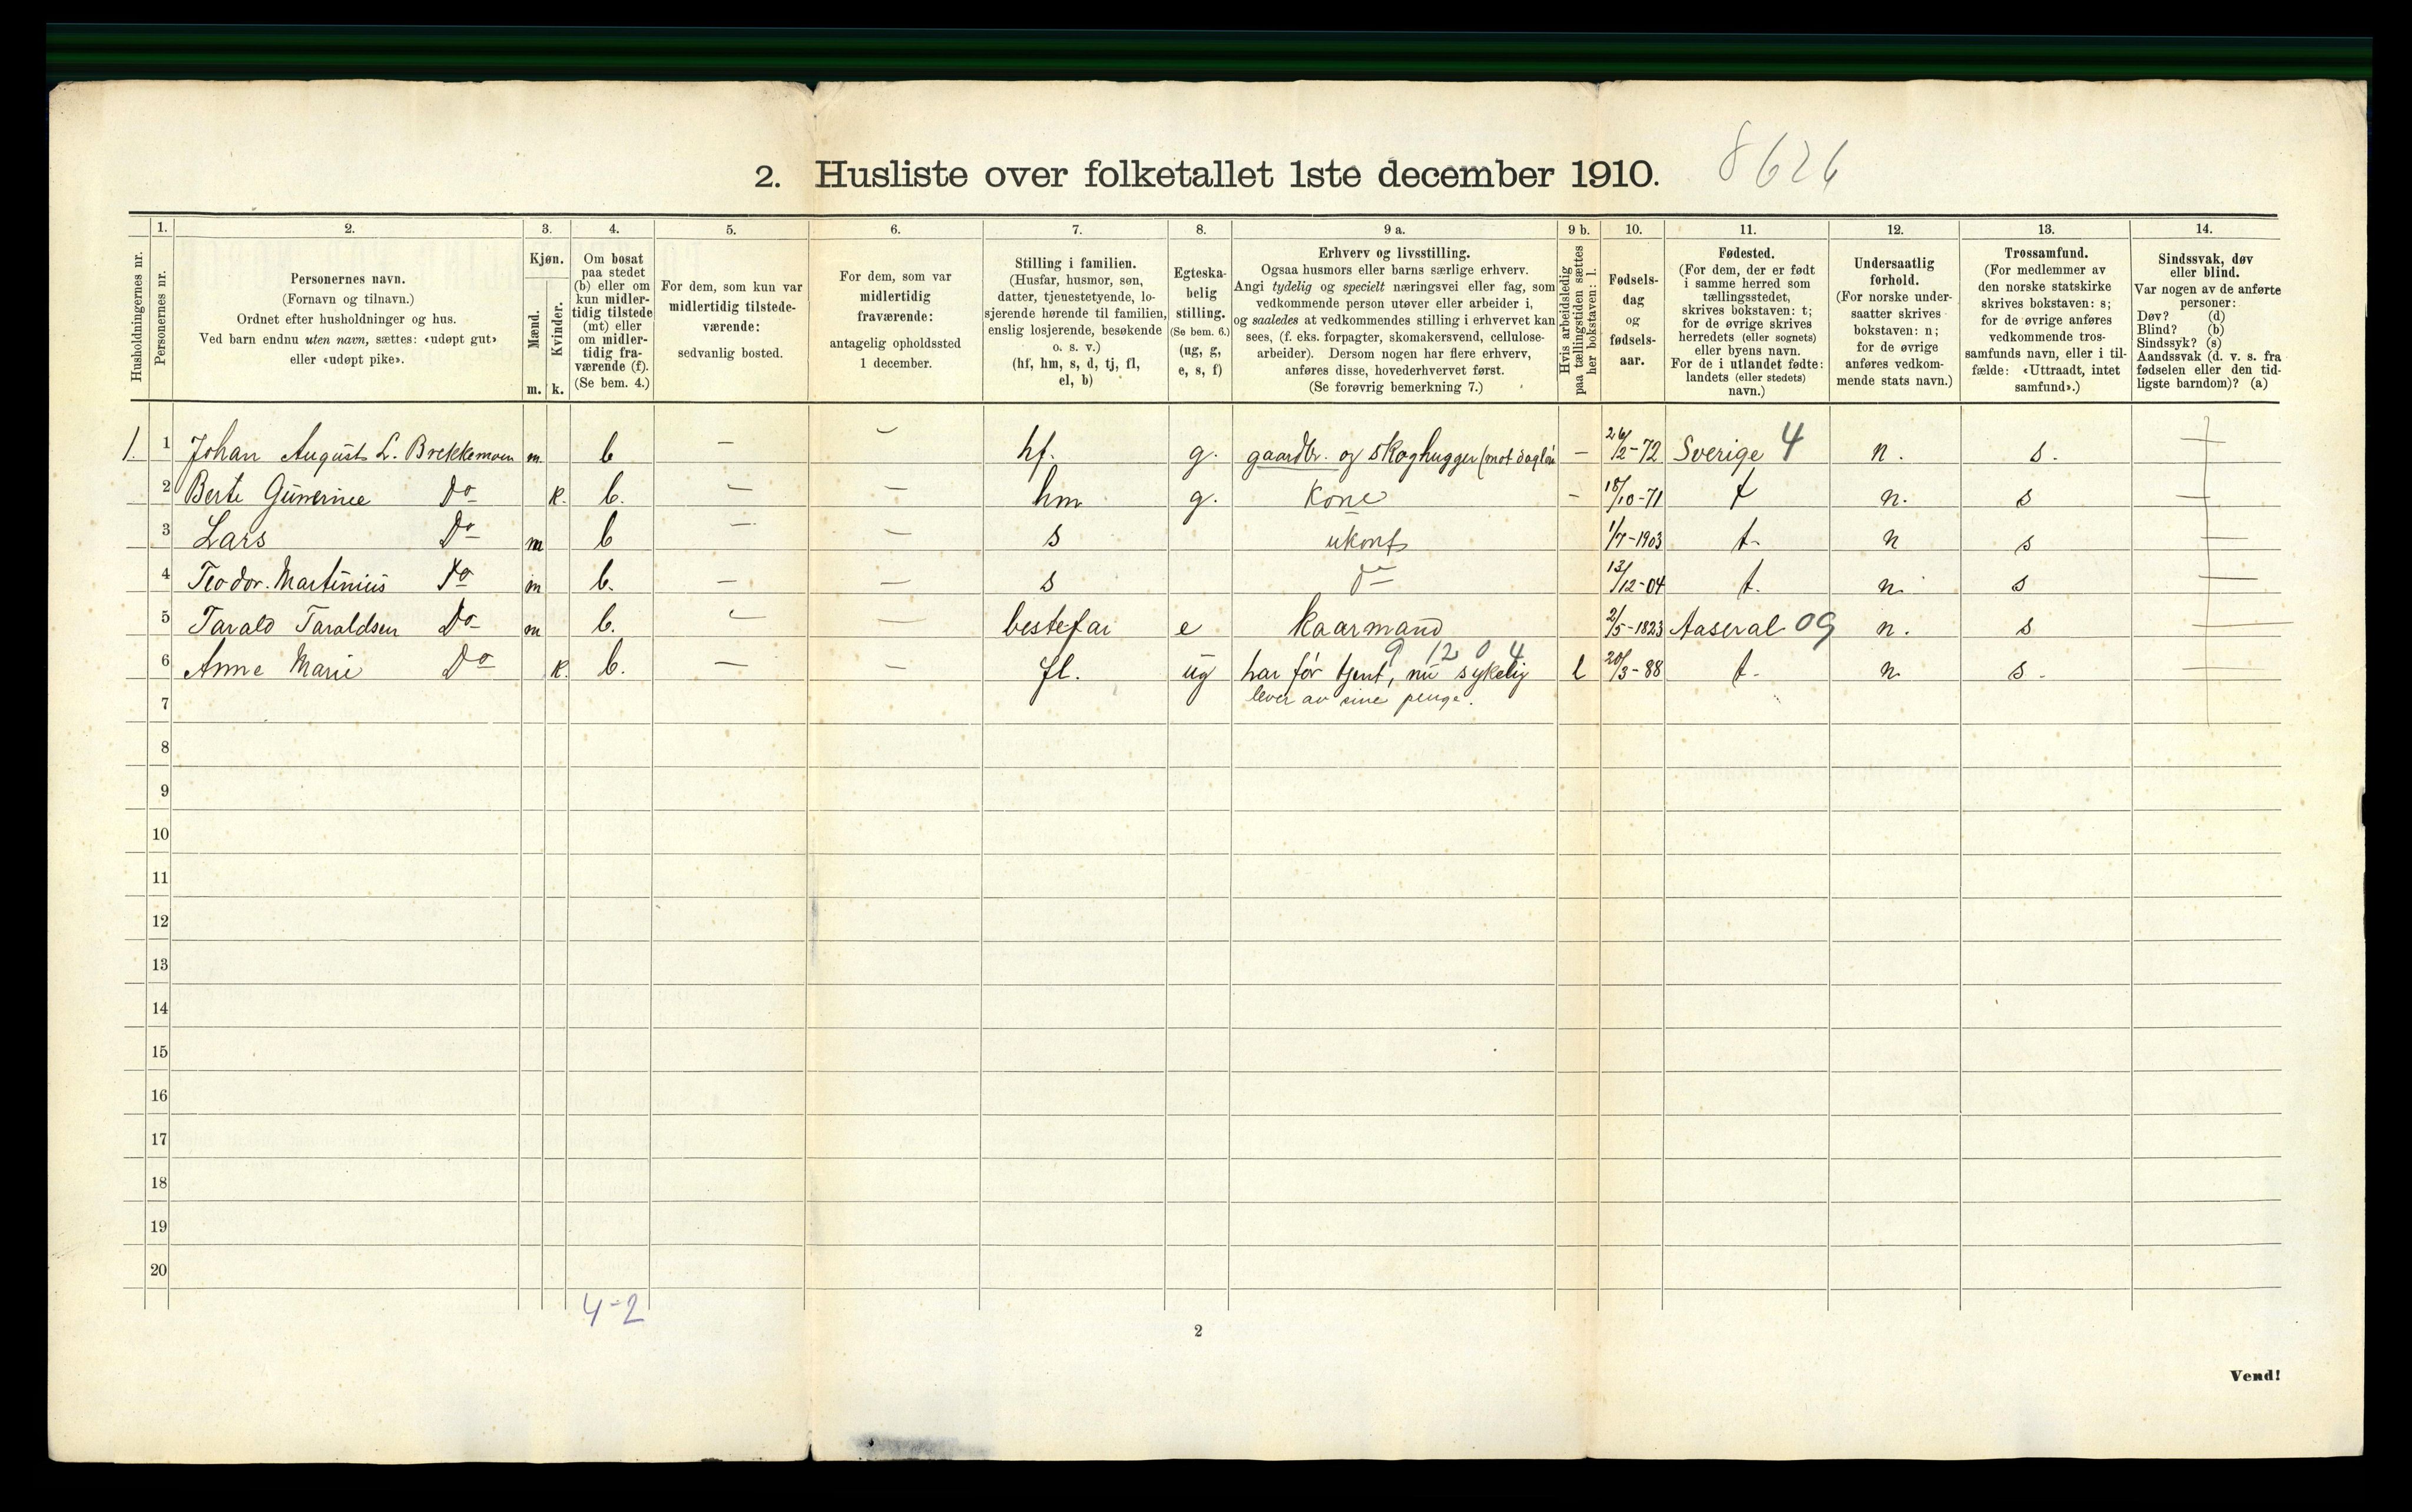 2. Husliste over folketallet 1ste december 1910. 8626
Husholdningernes nr.
1. Personernes nr.
2. Personernes navn.
(Fornavn og tilnavn.)
Ordnet efter husholdninger og hus.
Ved barn endnu uten navn, sættes: «udøpt gut»
eller «udøpt pike».
3. Kjøn.
Mænd. m.
Kvinder. k.
4. Om bosat
paa stedet
(b) eller om
kun midler-
tidig tilstede
(mt) eller
om midler-
tidig fra-
værende (f).
(Se bem. 4.)
5. For dem, som kun var
midlertidig tilstede-
værende:
sedvanlig bosted.
6. For dem, som var
midlertidig
fraværende:
antagelig opholdssted
1 december.
7. Stilling i familien.
(Husfar, husmor, søn,
datter, tjenestetyende, lo-
sjerende hørende til familien,
enslig losjerende, besøkende
o. s. v.)
(hf, hm, s, d, tj, fl,
el, b)
8. Egteska-
belig
stilling.
(Se bem. 6.)
(ug, g,
e, s, f)
9 a. Erhverv og livsstilling.
Ogsaa husmors eller barns særlige erhverv.
Angi tydelig og specielt næringsvei eller fag, som
vedkommende person utøver eller arbeider i,
og saaledes at vedkommendes stilling i erhvervet kan
sees, (f. eks. forpagter, skomakersvend, cellulose-
arbeider). Dersom nogen har flere erhverv,
anføres disse, hovederhvervet først.
(Se forøvrig bemerkning 7.)
9 b. Hvis arbeidsledig
paa tællingstiden sættes
her bokstaven: l.
10. Fødsels-
dag
og
fødsels-
aar.
11. Fødested.
(For dem, der er født
i samme herred som
tællingsstedet,
skrives bokstaven: t;
for de øvrige skrives
herredets (eller sognets)
eller byens navn.
For de i utlandet fødte:
landets (eller stedets)
navn.)
12. Undersaatlig
forhold.
(For norske under-
saatter skrives
bokstaven: n;
for de øvrige
anføres vedkom-
mende stats navn.)
13. Trossamfund.
(For medlemmer av
den norske statskirke
skrives bokstaven: s;
for de øvrige anføres
vedkommende tros-
samfunds navn, eller i til-
fælde: «Uttraadt, intet
samfund».)
14. Sindssvak, døv
eller blind.
Var nogen av de anførte
personer:
Døv? (d)
Blind? (b)
Sindssyk? (s)
Aandssvak (d. v. s. fra
fødselen eller den tid-
ligste barndom)? (a)
1. 1 Johan August L. Brekkemoen m. b — — hf. g. gaardbr. og skoghugger (mot dagløn — 26/2-72 Sverige 4 n. s. —
2 Berte Gunerine Do k. b. — — hm g. Kone - 18/10-71 t n. s —
3 Lars Do m b — — s ukonf 1/7-1903 t- n s —
4 Teodor. Martinius Do m b. — — s do 13/12-04 t. n. s —
5 Tarald Taraldsen Do m b. — — bestefar e Kaarmand 2/5-1823 Aaseral 09 n. s —
9 12 0 4
6 Anne Marie Do k. b. — — fl. ug har før tjent, nu sykelig l 20/3-88 t. n s. —
7 lever av sine penge.
8
9
10
11
12
13
14
15
16
17
18
19
20
4-2
2
Vend!